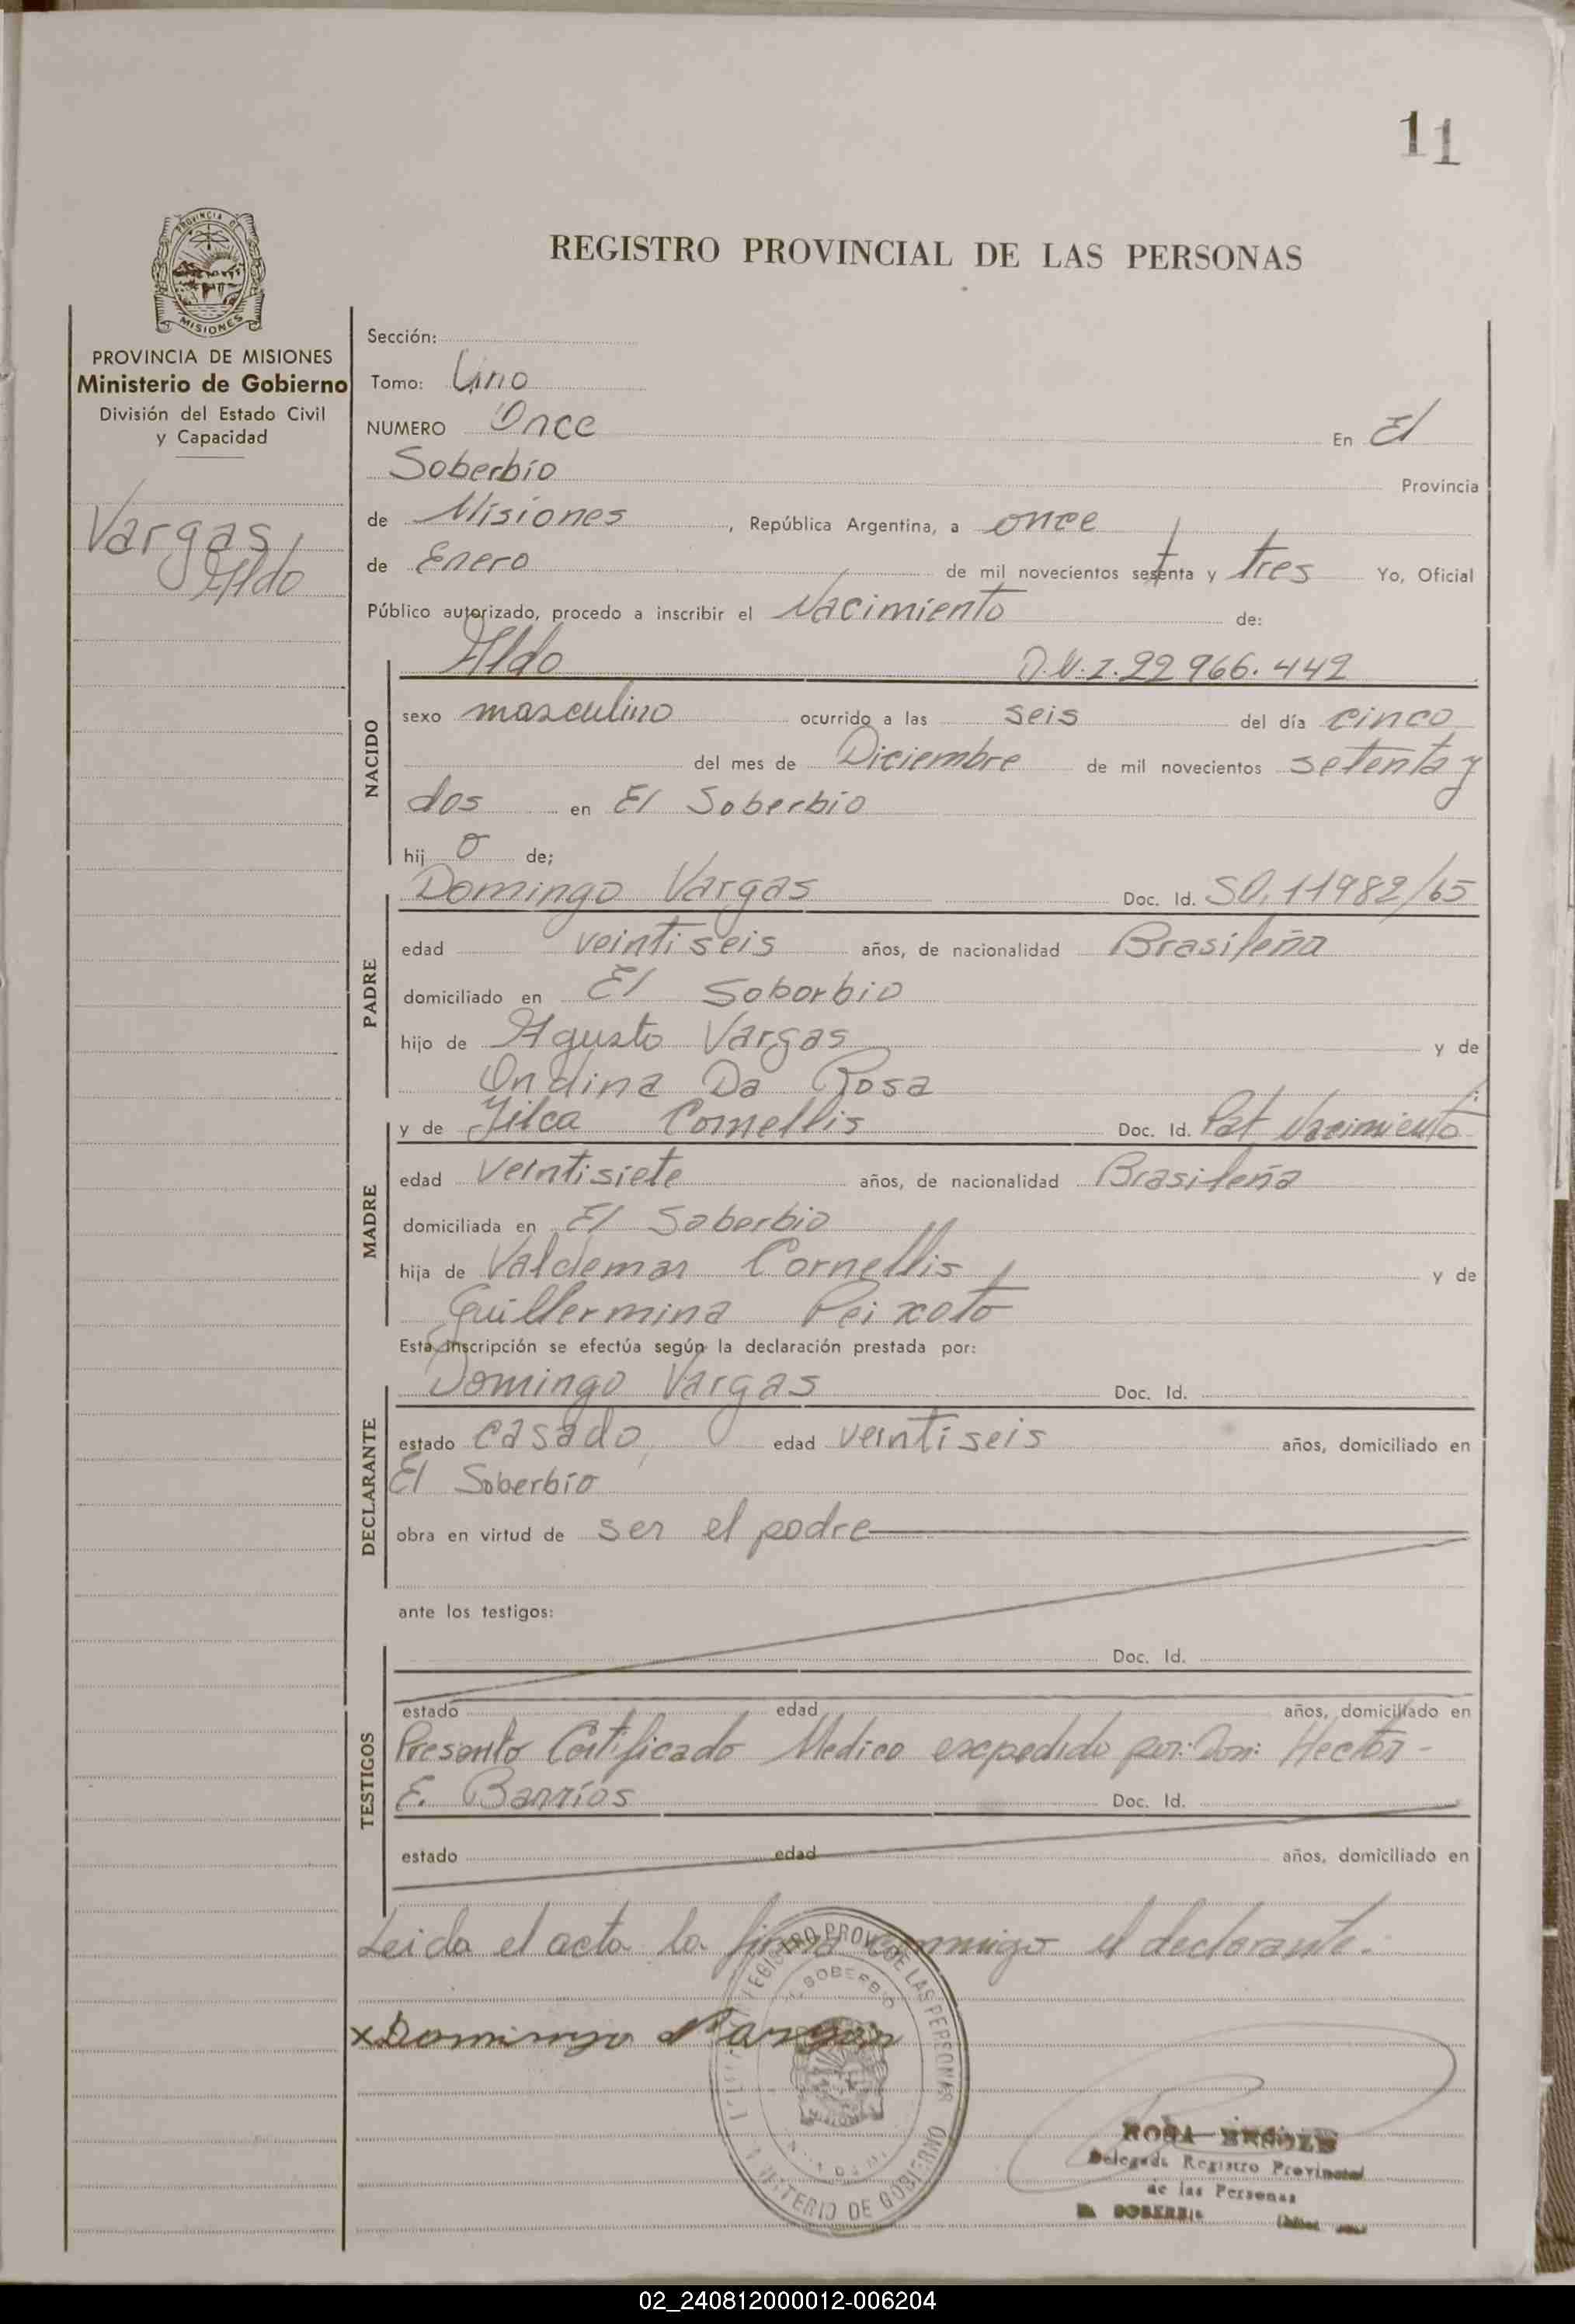 11
PROVINCIA DE
MISIONES
REGISTRO PROVINCIAL DE LAS PERSONAS
PROVINCIA DE MISIONES
Ministerio de Gobierno
División del Estado Civil
y Capacidad
Vargas,
Aldo
Sección:
Tomo: Uno
NUMERO Once En El
Soberbio Provincia
de Misiones, República Argentina, a once
de Enero de mil novecientos setenta y tres Yo, Oficial
Público autorizado, procedo a inscribir el Nacimiento de:
Aldo D.N.I. 22966.442
NACIDO
sexo masculino ocurrido a las seis del día cinco
del mes de Diciembre de mil novecientos setenta y
dos en El Soberbio
hij o de;
Domingo Vargas Doc. Id. S0.11982/65
PADRE
edad veintiseis años, de nacionalidad Brasileña
domiciliado en El Soborbio
hijo de Agusto Vargas y de
Ondina Da Rosa
MADRE
y de Jilca Cornellis Doc. Id. Pat Nacimiento
edad veintisiete años, de nacionalidad Brasileña
domiciliada en El Soberbio
hija de Valdemar Cornellis y de
Guillermina Peixoto
Esta inscripción se efectúa según la declaración prestada por:
Domingo Vargas Doc. Id.
DECLARANTE
estado casado, edad veintiseis años, domiciliado en
El Soberbio
obra en virtud de ser el padre
ante los testigos:
Doc. Id.
TESTIGOS
estado edad años, domiciliado en
Presento Certificado Medico expedido por: Don: Hector
E. Barrios Doc. Id.
estado edad años, domiciliado en
Leida el acta la firma conmigo el declarante.
REGISTRO PROV. DE LAS PERSONAS
SOBERBIO
MINISTERIO DE GOBIERNO
x Domingo Vargas
ROSA
Delegada Registro Provincial
de las Personas
EL SOBERBIO
02_240812000012-006204